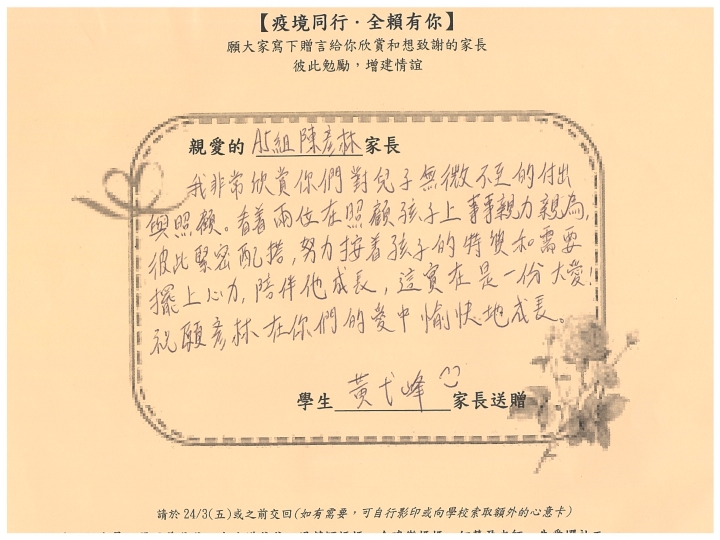 【疫境同行．全賴有你】
願大家寫下贈言給你欣賞和想致謝的家長
彼此勉勵，增建情誼
親愛的 A5組 陳彥林 家長
我非常欣賞你們對兒子無微不至的付出
與照顧。看着兩位在照顧孩子上事事親力親為,
彼此緊密配搭,努力按着孩子的特質和需要
擺上心力,陪伴他成長,這實在是一份大愛!
祝願彥林在你們的愛中愉快地成長。
學生 黃弋峰 家長送贈
請於 24/3(五)或之前交回(如有需要，可自行影印或向學校索取額外的心意卡)